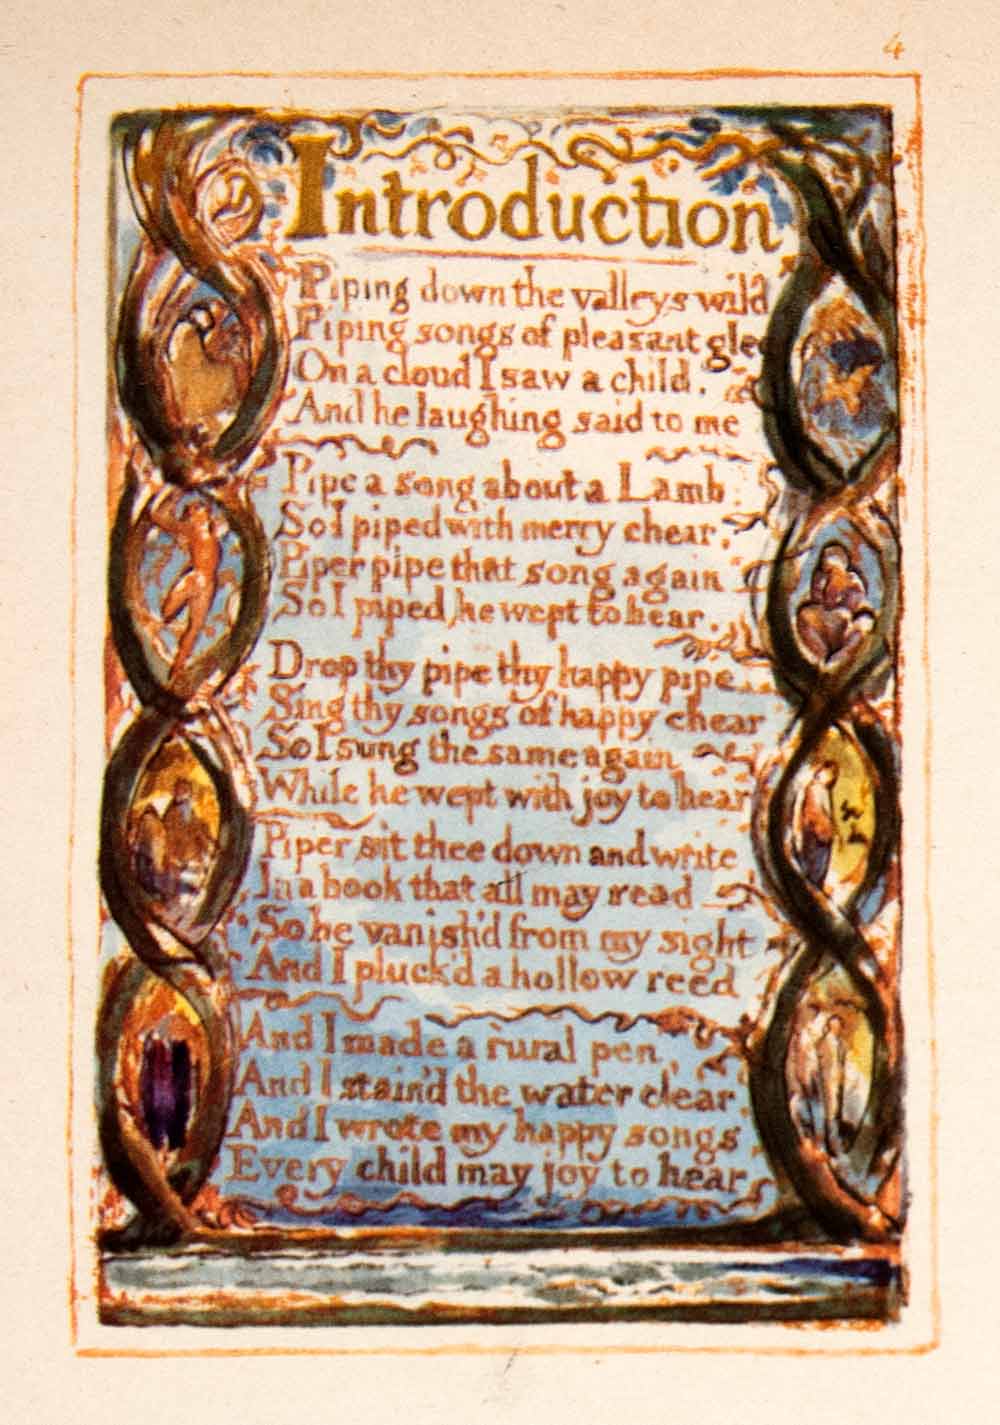 4
Introduction
Piping down the valleys wild
Piping songs of pleasant glee
On a cloud I saw a child.
And he laughing said to me
Pipe a song about a Lamb:
So I piped with merry chear,
Piper pipe that song again
So I piped, he wept to hear.
Drop thy pipe thy happy pipe
Sing thy songs of happy chear
So I sung the same again
While he wept with joy to hear
Piper sit thee down and write
In a book that all may read
So he vanish'd from my sight
And I pluck'd a hollow reed
And I made a rural pen,
And I stain'd the water clear,
And I wrote my happy songs
Every child may joy to hear